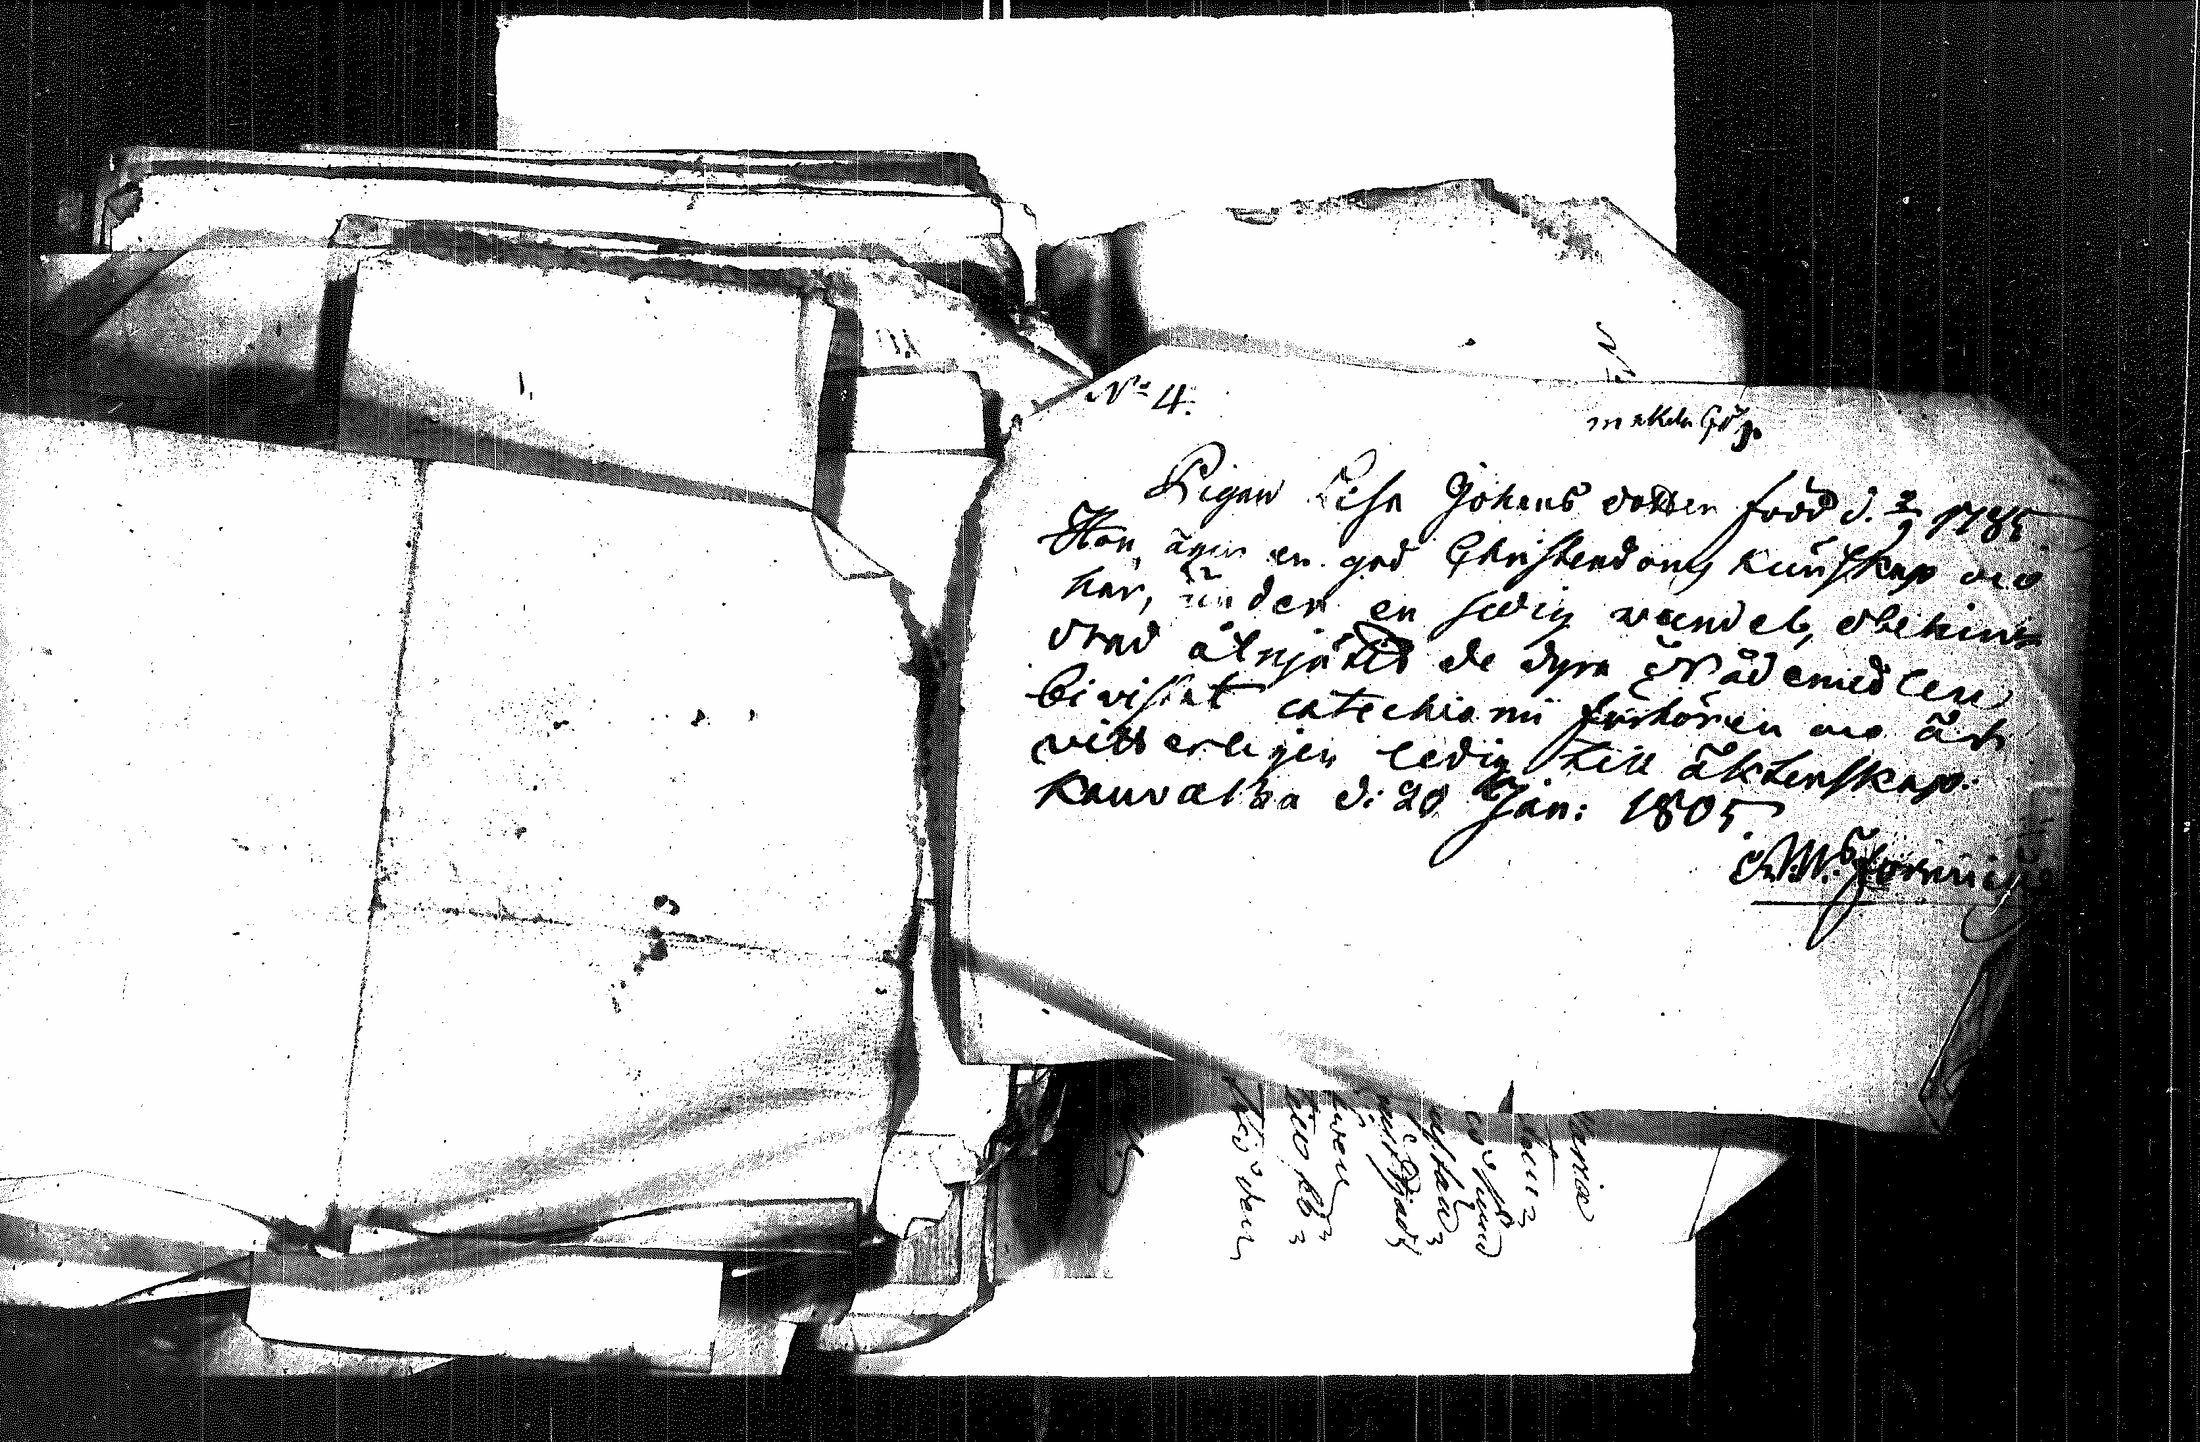 No 4.
Pigan Lisa Johans dotter född d. 2/9 1785
Hon äger en god Christendoms kunskap och
har, under en sedig wandel, obehin-
drad åtnjutit de dyra Nådemedlen
bivistat catechismi förhören och är
vitterligen ledig till äktenskap.
Kauvatsa d: 20 Jan: 1805.